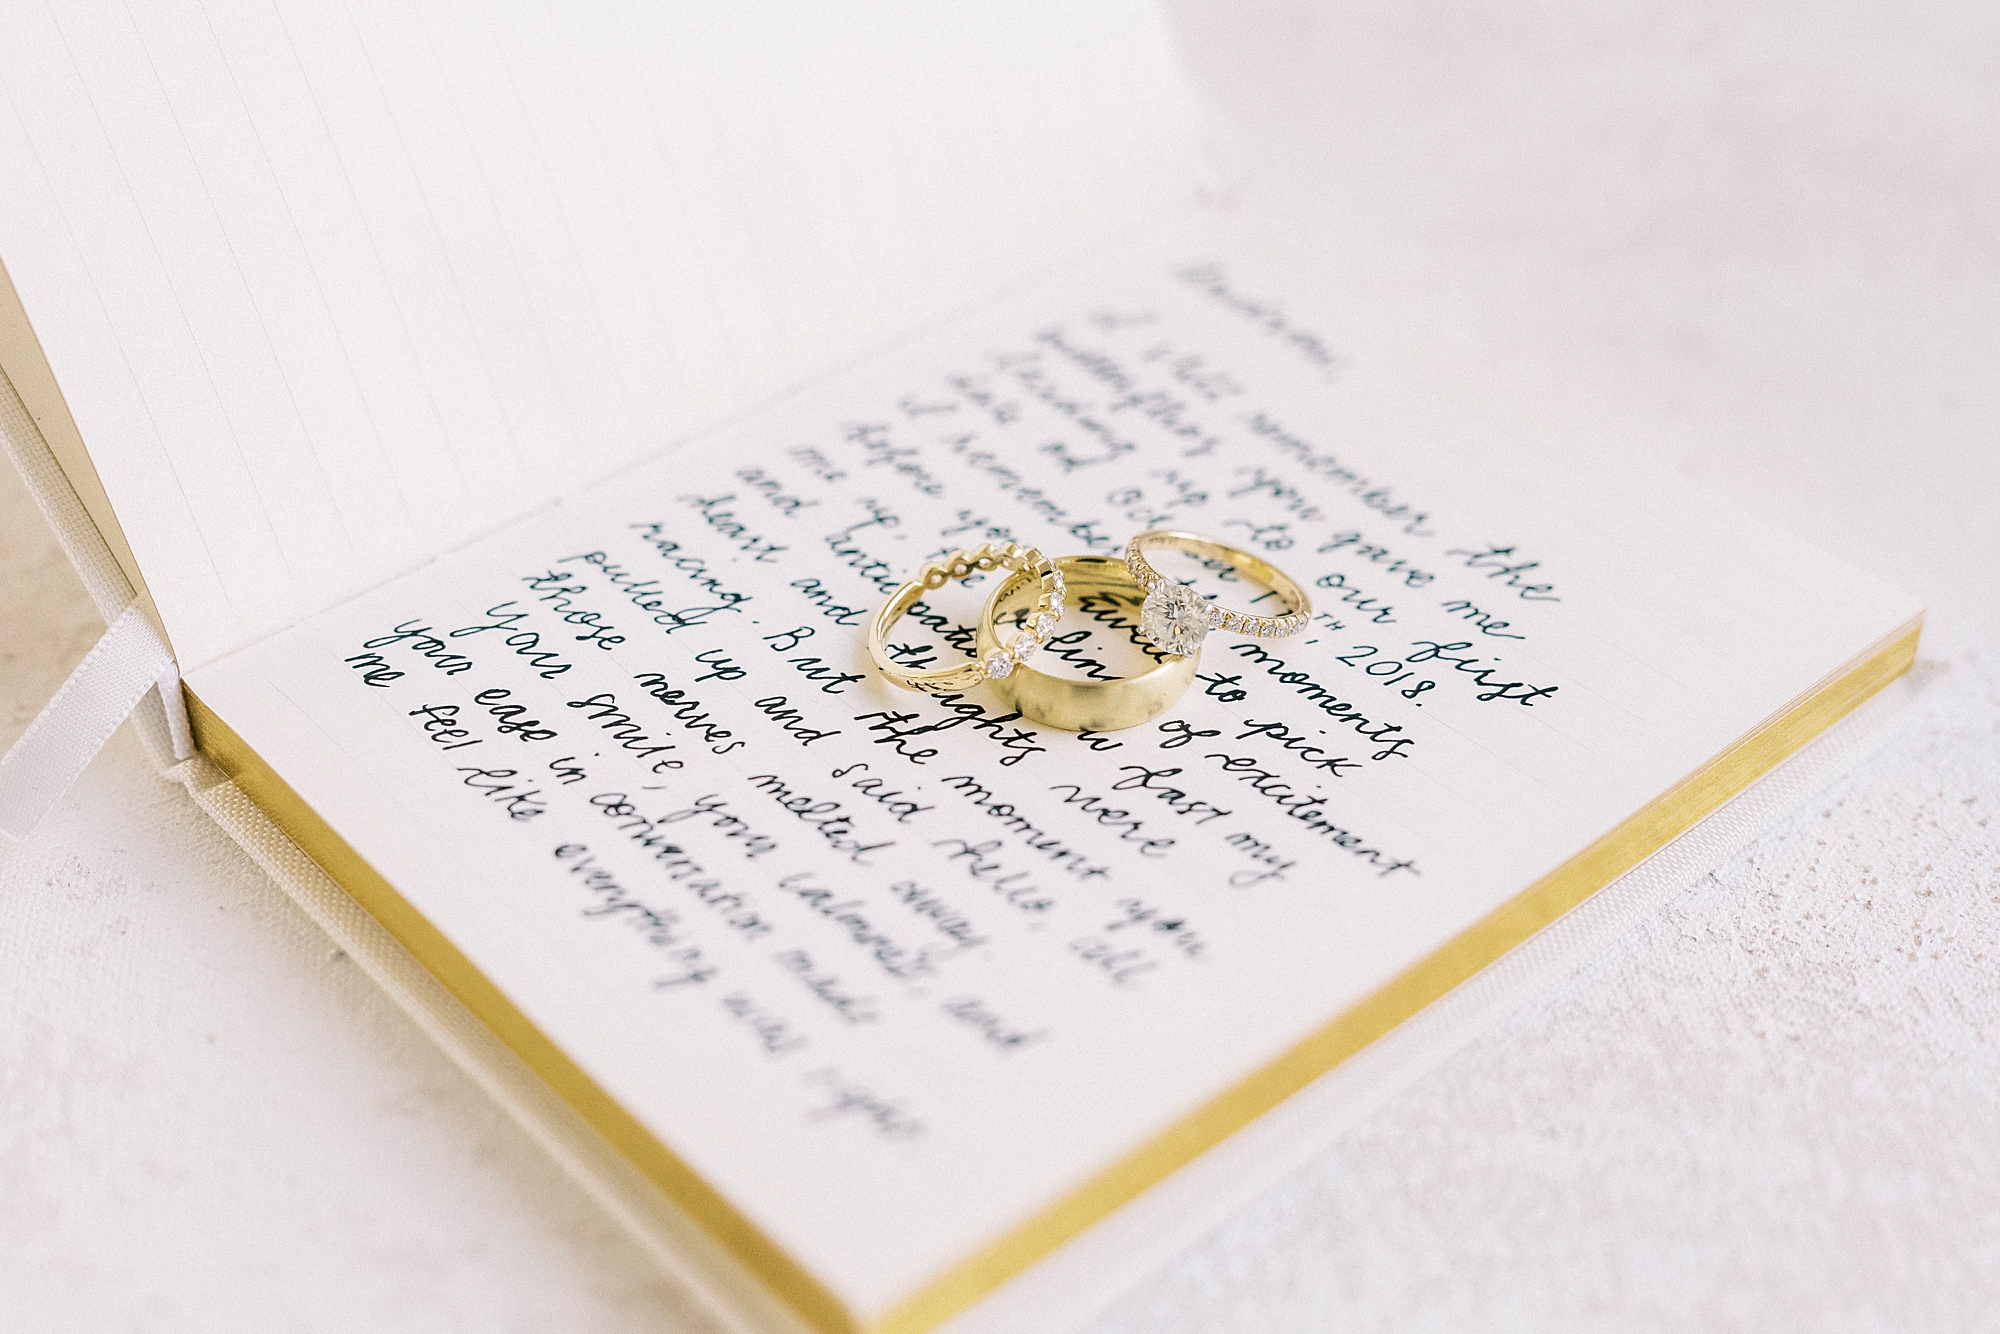 I still remember the
butterflies you gave me
leading up to our first
date on TH, 2018.
I remember moments
before you to pick
me up, the feeling of excitement
and anticipation fast my
heart and thoughts were
racing. But the moment you
pulled up and said hello, all
those nerves melted away.
Your smile, your calmness, and
your ease in conversation made
me feel like everything was right